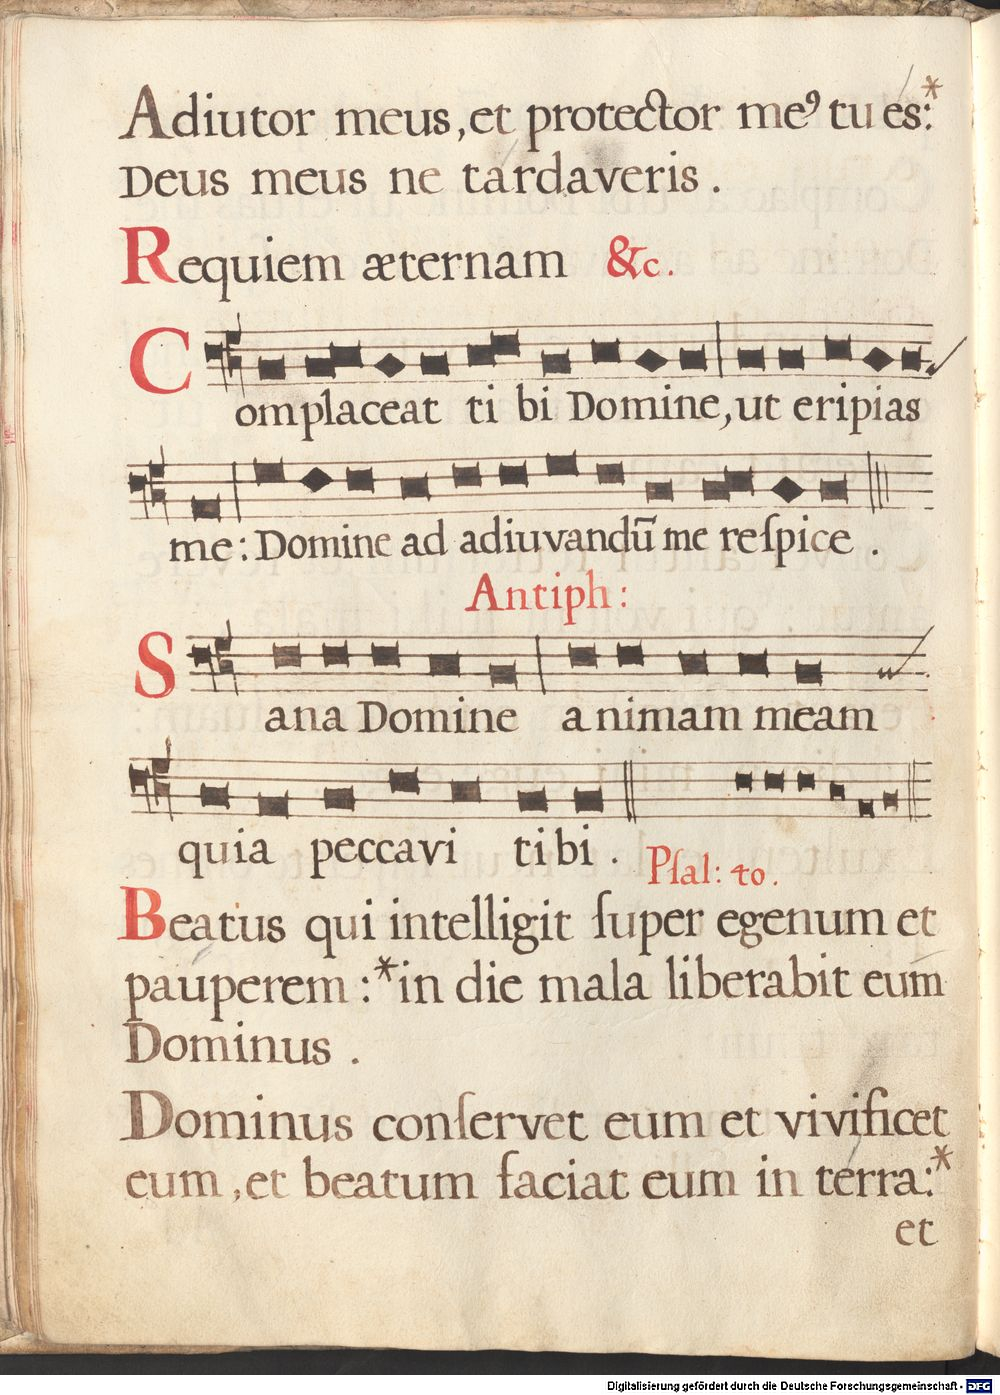 Adiutor meus, et protector meꝰ tu es:*
Deus meus ne tardaveris.
Requiem æternam &c.
Complaceat tibi Domine, ut eripias
me: Domine ad adiuvandū me reſpice.
Antiph:
Sana Domine animam meam
quia peccavi tibi.
Pſal: 40.
Beatus qui intelligit ſuper egenum et
pauperem:* in die mala liberabit eum
Dominus.
Dominus conſervet eum et vivificet
eum, et beatum faciat eum in terra:*
et
Digitalisierung gefördert durch die Deutsche Forschungsgemeinschaft - DFG